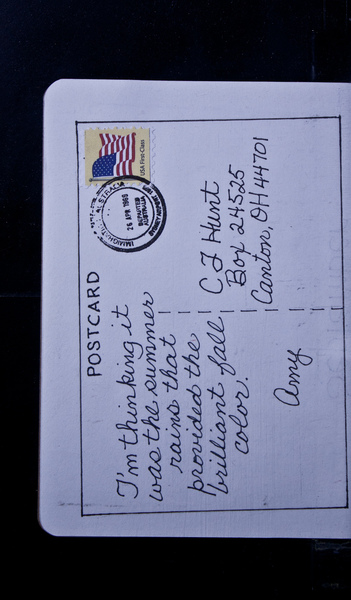 POSTCARD
I'm thinking it
was the summer
rains that
provided the
brilliant fall
color!
Amy
C J Hunt
Box 24525
Canton, OH 44701
USA First-Class
IMMIGRATION AUSTRALIA
26 APR 1968
DEPARTED
AUSTRALIA